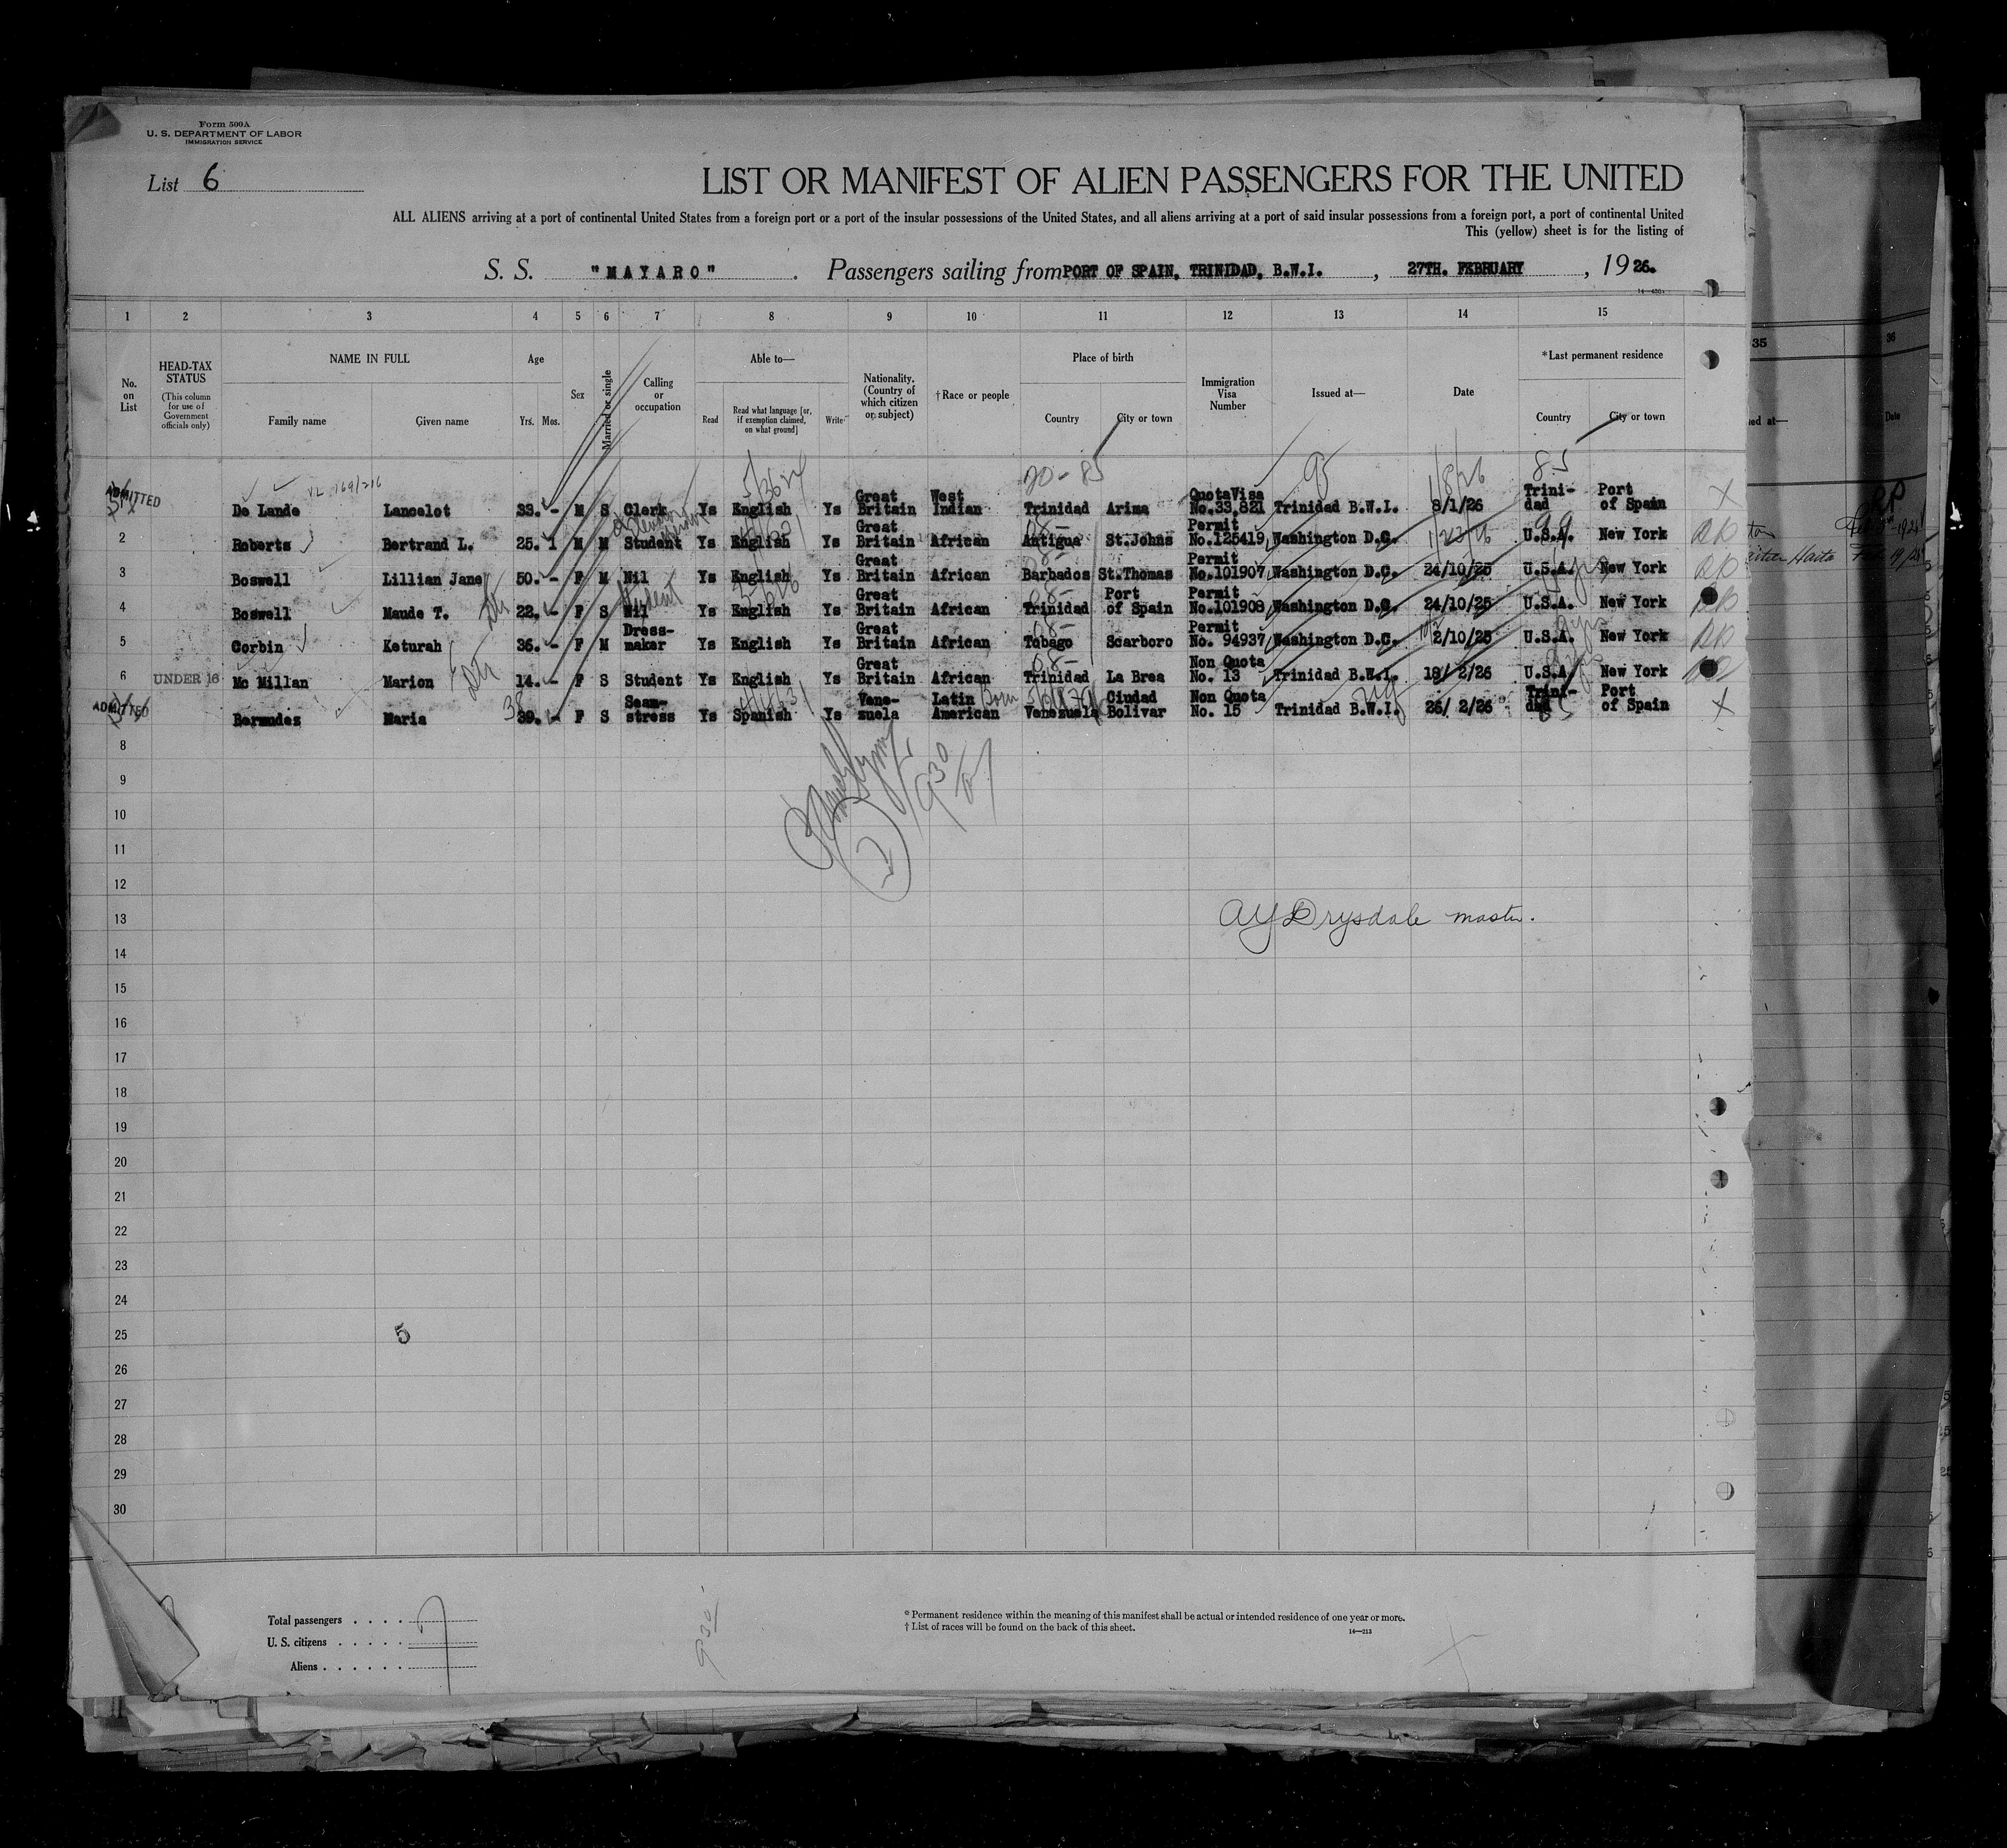 Form 500A
U. S. DEPARTMENT OF LABOR
IMMIGRATION SERVICE
List 6
LIST OR MANIFEST OF ALIEN PASSENGERS FOR THE UNITED
ALL ALIENS arriving at a port of continental United States from a foreign port or a port of the insular possessions of the United States, and all aliens arriving at a port of said insular possessions from a foreign port, a port of continental United
This (yellow) sheet is for the listing of
S. S. "MAYARO" . Passengers sailing from PORT OF SPAIN, TRINIDAD, B.W.I. , 27TH. FEBRUARY , 1926.
1 2 3 4 5 6 7 8 9 10 11 12 13 14 15
No. on List
HEAD-TAX STATUS (This column for use of Government officials only)
NAME IN FULL Family name Given name
Age Yrs. Mos.
Sex
Married or single
Calling or occupation
Able to— Read Read what language [or, if exemption claimed, on what ground] Write
Nationality. (Country of which citizen or subject)
†Race or people
Place of birth Country City or town
Immigration Visa Number
Issued at—
Date
*Last permanent residence Country City or town
ADMITTED De Lande Lancelot 33. - M S Clerk Ys English Ys Great Britain West Indian Trinidad Arima QuotaVisa No.33,821 Trinidad B.W.I. 8/1/26 Trinidad Port of Spain
2 Roberts Bertrand L. 25. 1 M M Student Ys English Ys Great Britain African Antigua St.Johns Permit No.125419 Washington D.C. U.S.A. New York
3 Boswell Lillian Jane 50. - F M Nil Ys English Ys Great Britain African Barbados St.Thomas Permit No.101907 Washington D.C. 24/10/25 U.S.A. New York
4 Boswell Maude T. 22. - F S Nil Student Ys English Ys Great Britain African Trinidad Port of Spain Permit No.101908 Washington D.C. 24/10/25 U.S.A. New York
5 Corbin Keturah 36. - F M Dress-maker Ys English Ys Great Britain African Tobago Scarboro Permit No. 94937 Washington D.C. 2/10/25 U.S.A. New York
6 UNDER 16 Mc Millan Marion 14. - F S Student Ys English Ys Great Britain African Trinidad La Brea Non Quota No. 13 Trinidad B.W.I. 19/ 2/26 U.S.A. New York
ADMITTED Bermudez Maria 39. - F S Seam-stress Ys Spanish Ys Vene-zuela Latin American Venezuela Ciudad Bolivar Non Quota No. 15 Trinidad B.W.I. 26/ 2/26 Trini-dad Port of Spain
8
9
930
10
11
12
13 AY Drysdale master.
14
15
16
17
18
19
20
21
22
23
24
25 5
26
27
28
29
30
Total passengers . . . . 7
U. S. citizens . . . . .
Aliens . . . . . .
930
* Permanent residence within the meaning of this manifest shall be actual or intended residence of one year or more.
† List of races will be found on the back of this sheet.
14—213
35
36
Date